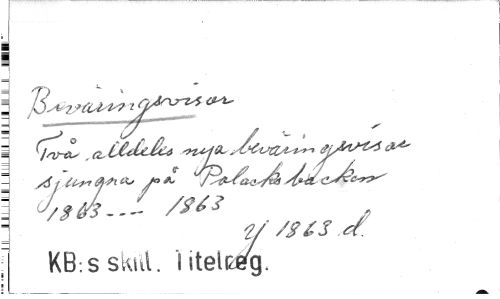 Beväringsvisor
Två alldeles nya beväringsvisor
sjungna på Polacksbacken
1863 --- 1863
Y 1863 d.
KB:s skill. Titelreg.